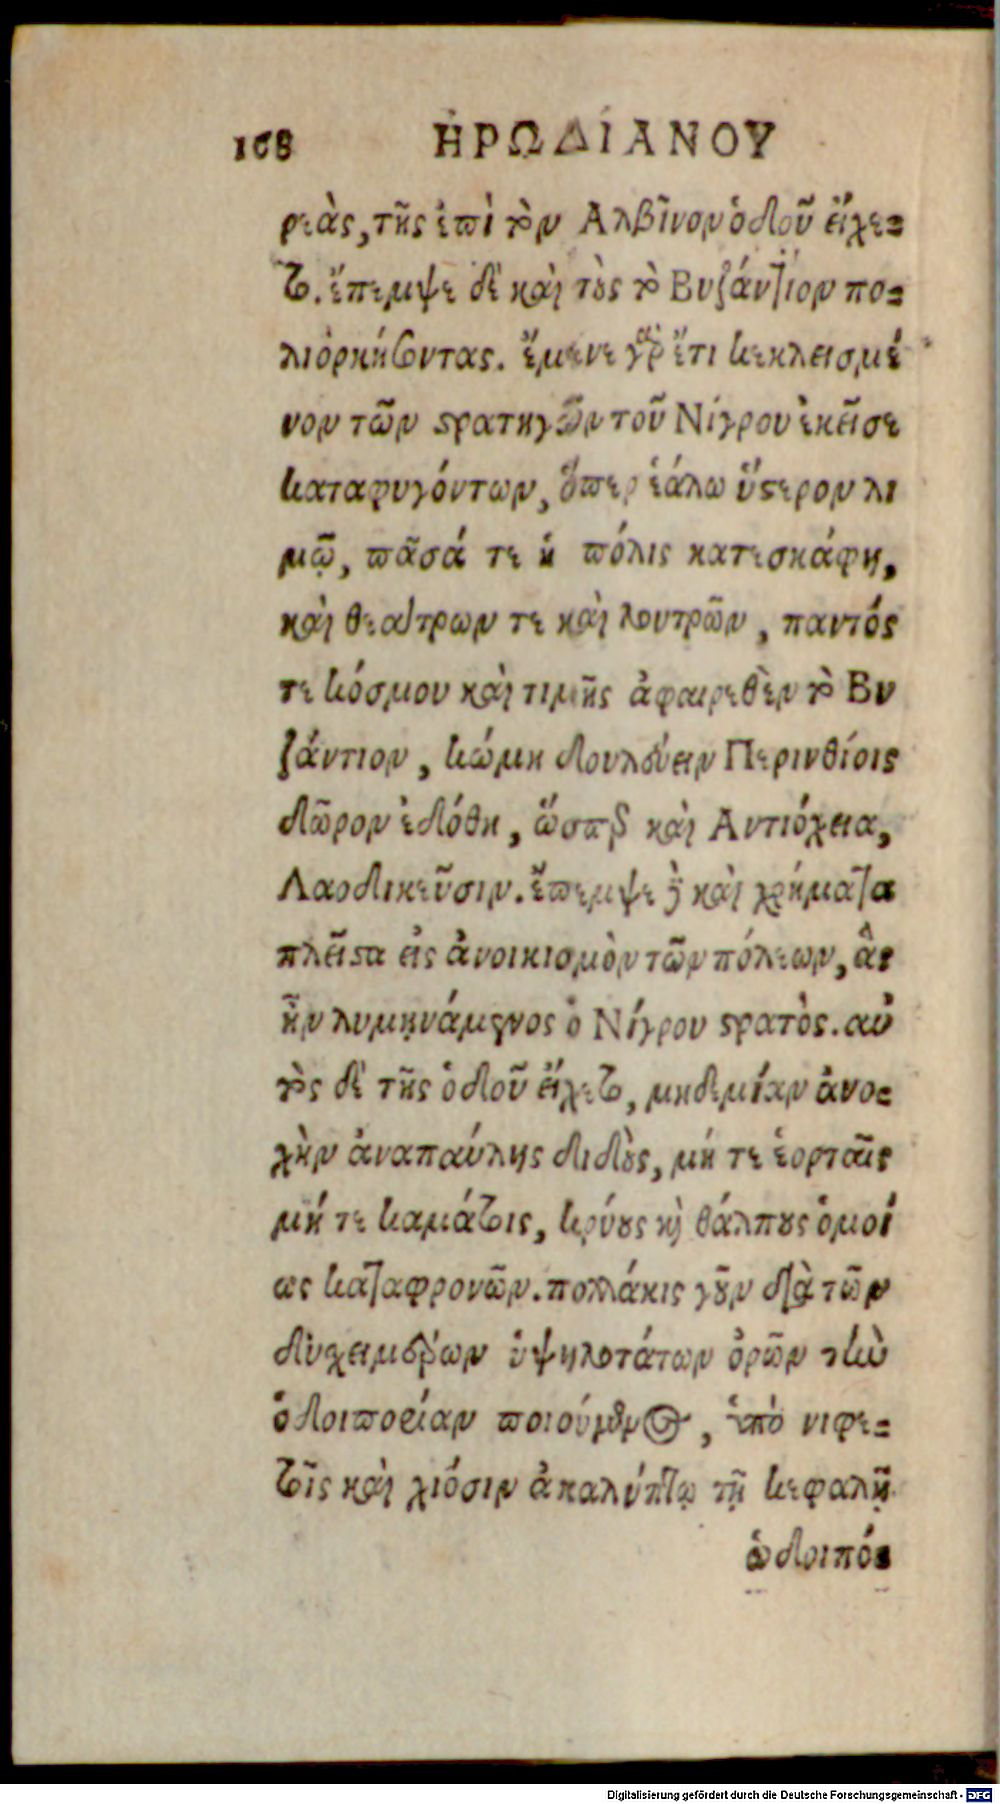 168 ΗΡΩΔΙΑΝΟΥ
ρεὰς, τῆς ἐπὶ τὸν Αλβῖνον ὁδοῦ εἴχε=
το. ἔπεμψε δὲ καὶ τοὺς τὸ Βυζάντιον πο=
λιορκήσοντας. ἔμενε γὰρ ἔτι κεκλεισμέ
νον τῶν στρατηγῶν τοῦ Νίγρου ἐκεῖσε
καταφυγόντων, ὅπερ ἑάλω ὕστερον λι
μῷ, πᾶσά τε ἡ πόλις κατεσκάφη,
καὶ θεάτρων τε καὶ λουτρῶν, παντός
τε κόσμου καὶ τιμῆς ἀφαιρεθὲν τὸ Βυ
ζάντιον, κώμη δουλεύειν Περινθίοις
δῶρον ἐδόθη, ὥσπερ καὶ Αντιόχεια,
Λαοδικεῦσιν. ἔπεμψε δὲ καὶ χρήματα
πλεῖστα εἰς ἀνοικισμὸν τῶν πόλεων, ἃς
ἦν λυμηνάμενος ὁ Νίγρου στρατὸς. αὐ
τὸς δὲ τῆς ὁδοῦ εἴχετο, μηδεμίαν ἀνο=
χὴν ἀναπαύλης διδοὺς, μή τε ἑορταῖς
μή τε καμάτοις, κρύους καὶ θάλπους ὁμοί
ως καταφρονῶν. πολλάκις γοῦν διὰ τῶν
δυχειμέρων ὑψηλοτάτων ὀρῶν τὴν
ὁδοιπορίαν ποιούμενος, ὑπὸ νιφε=
τοῖς καὶ χιόσιν ἀκαλύπτῳ τῇ κεφαλῇ
ὡδοιπό=
Digitalisierung gefördert durch die Deutsche Forschungsgemeinschaft - DFG